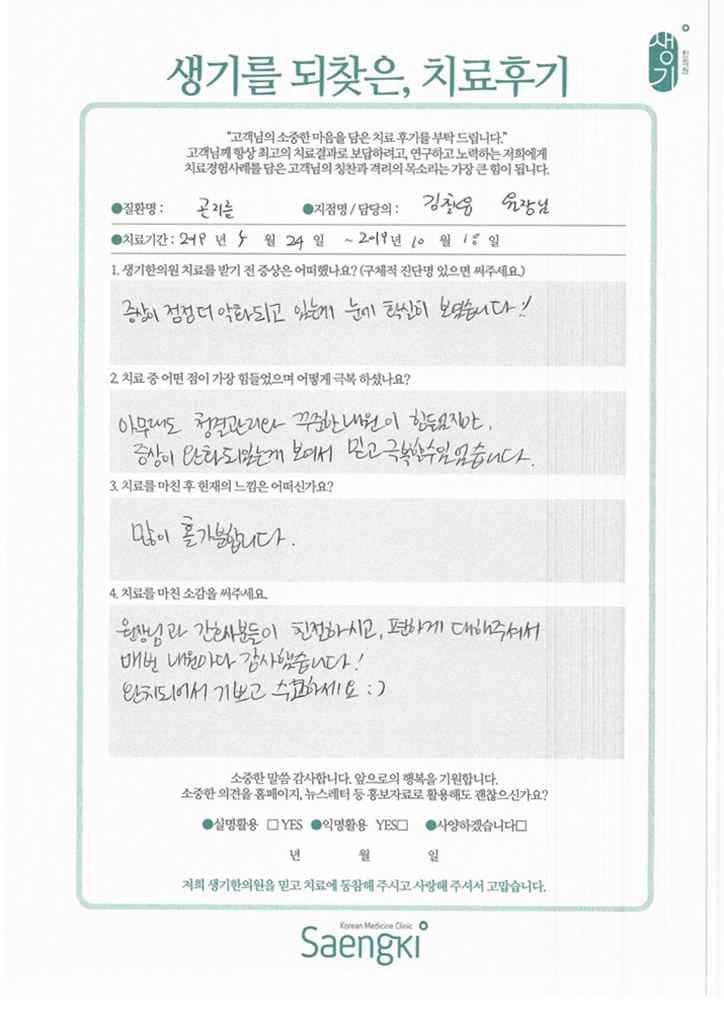 생기
한의원
생기를 되찾은, 치료후기
“고객님의 소중한 마음을 담은 치료 후기를 부탁 드립니다.”
고객님께 항상 최고의 치료결과로 보답하려고, 연구하고 노력하는 저희에게
치료경험사례를 담은 고객님의 칭찬과 격려의 목소리는 가장 큰 힘이 됩니다.
●질환명 : 곤지름 ●지점명 / 담당의 : 원장님
●치료기간 : 2019 년 5 월 24 일 ~ 2019 년 10 월 18 일
1. 생기한의원 치료를 받기 전 증상은 어떠했나요? (구체적 진단명 있으면 써주세요.)
증상이 점점더 악화되고 있는게 눈에 확실히 보였습니다!!
2. 치료 중 어떤 점이 가장 힘들었으며 어떻게 극복 하셨나요?
아무래도 청결관리와 꾸준한 내원이 힘들었지만,
증상이 완화되있는게 보여서 믿고 극복할수있었습니다.
3. 치료를 마친 후 현재의 느낌은 어떠신가요?
많이 홀가분합니다.
4. 치료를 마친 소감을 써주세요.
원장님과 간호사분들이 친절하시고, 편하게 대해주셔서
매번 내원마다 감사했습니다!
완치되어서 기쁘고 수고하세요 :)
소중한 말씀 감사합니다. 앞으로의 행복을 기원합니다.
소중한 의견을 홈페이지, 뉴스레터 등 홍보자료로 활용해도 괜찮으신가요?
●실명활용 □ YES ●익명활용 YES□ ●사양하겠습니다□
년 월 일
저희 생기한의원을 믿고 치료에 동참해 주시고 사랑해 주셔서 고맙습니다.
Korean Medicine Clinic
Saengki